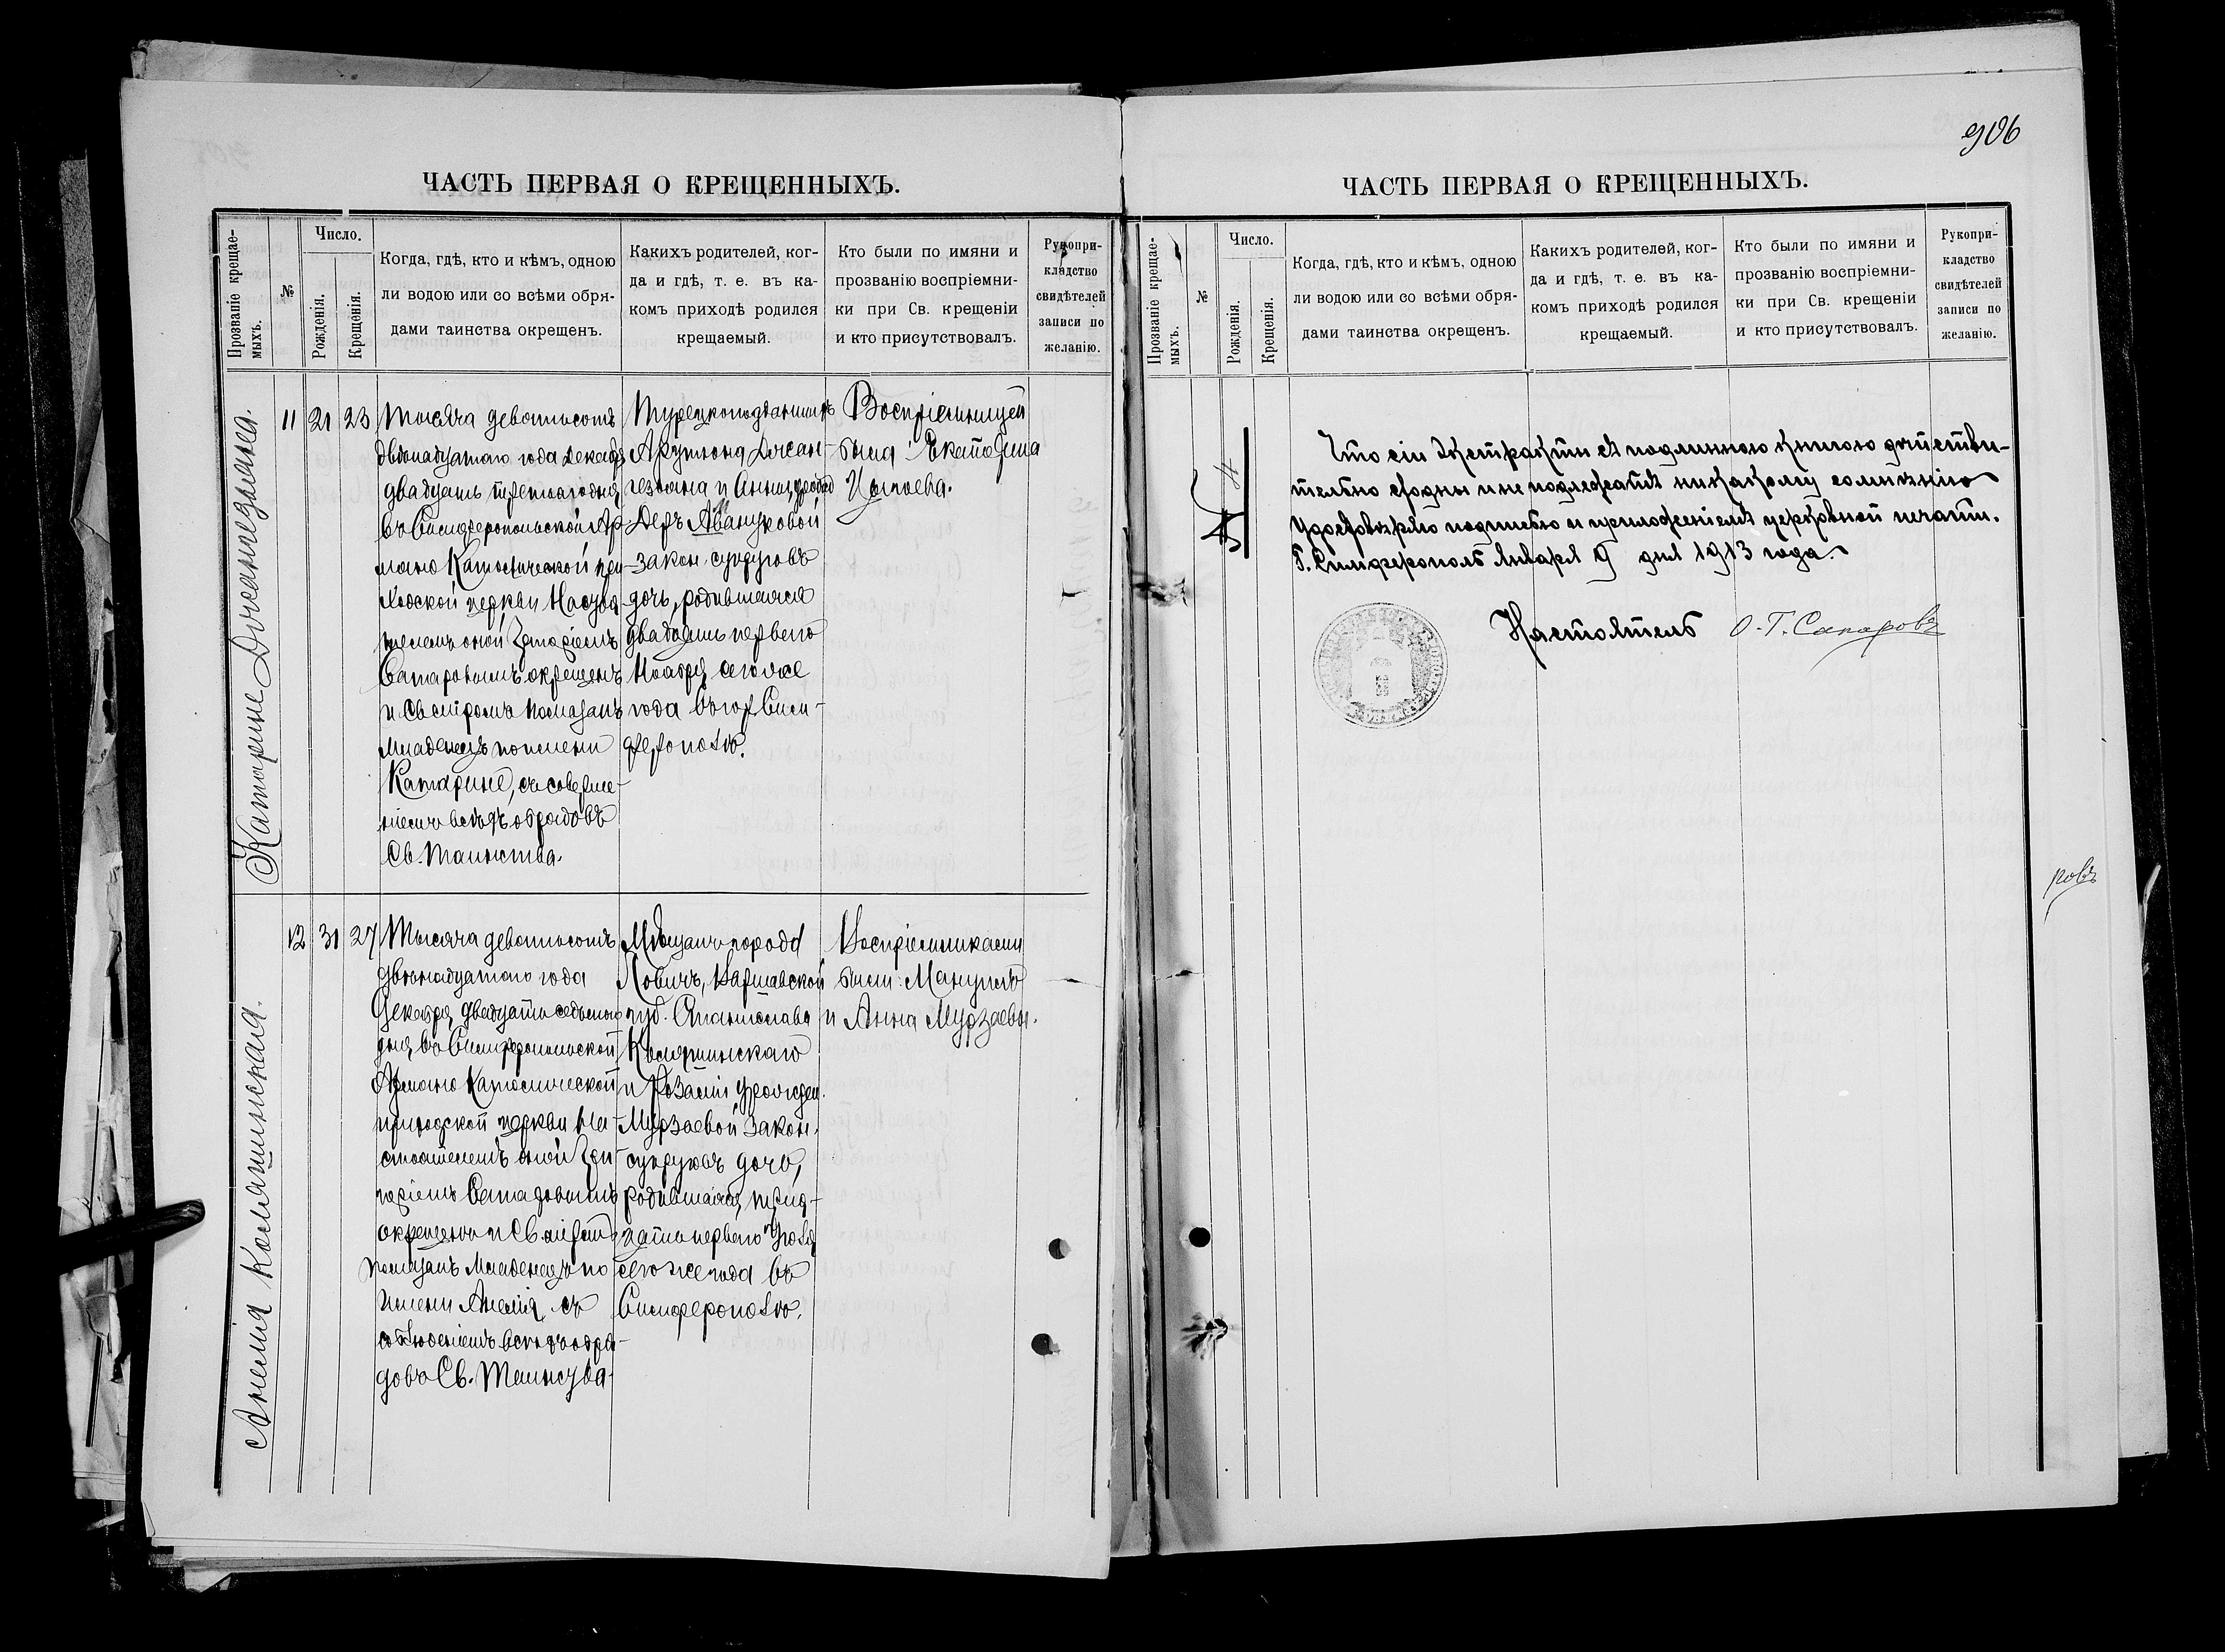 906
ЧАСТЬ ПЕРВАЯ О КРЕЩЕННЫХЪ.
Прозваніе крещае-
мыхъ.
№
Число.
Рожденія.
Крещенія.
Когда, гдѣ, кто и кѣмъ, одною
ли водою или со всѣми обря-
дами таинства окрещенъ.
Какихъ родителей, ког-
да и гдѣ, т. е. въ ка-
комъ приходѣ родился
крещаемый.
Кто были по имяни и
прозванію воспріемни-
ки при Св. крещеніи
и кто присутствовалъ.
Рукопри-
кладство
свидѣтелей
записи по
желанію.
Катарине Джеангезьяна.
11
21
23
Тысяча девятьсотъ
двѣнадцатаго года Декабря
двадцать третьяго дня
въ Симферопольской Ар
мяно Католической при
ходской церкви Настоя
телемъ оной
Сапаровымъ окрещенъ
и Св. миромъ помазанъ
Младенецъ по имени
Катарине, съ соверше-
ніемъ всѣхъ обрядовъ
Св. Таинства.
Турецкоподданныхъ
Арутюна Джеан-
гезьяна и Анны урожд
Деръ Авануковой
закон. супруговъ
дочь, родившаяся
двадцать перваго
Ноября сего же
года въ гор. Сим-
ферополѣ.
Воспріемницей
была: Екатерина
Цытоева.
Анелія Косьминская.
12
31
27
Тысяча девятьсотъ
двѣнадцатаго года
Декабря двадцать седьмого
дня въ Симферопольской
Армяно Католической
приходской церкви На-
стоятелемъ оной
Сапаровымъ
окрещенъ и Св. миромъ
помазанъ Младенецъ по
имени Анелія, съ
соблюденіемъ всѣхъ обря-
довъ Св. Таинства.
Мѣщанъ города
Ловичъ, Варшавской
губ. Станислава
Косьминскаго
и Розаліи урожден.
Мурзаевой закон.
супруговъ дочь,
родившаяся трид-
цать перваго Іюля
сего же года въ
Симферополѣ.
Воспріемниками
были: Мануилъ
и Анна Мурзаевы.
ЧАСТЬ ПЕРВАЯ О КРЕЩЕННЫХЪ.
Прозваніе крещае-
мыхъ.
№
Число.
Рожденія.
Крещенія.
Когда, гдѣ, кто и кѣмъ, одною
ли водою или со всѣми обря-
дами таинства окрещенъ.
Какихъ родителей, ког-
да и гдѣ, т. е. въ ка-
комъ приходѣ родился
крещаемый.
Кто были по имяни и
прозванію воспріемни-
ки при Св. крещеніи
и кто присутствовалъ.
Рукопри-
кладство
свидѣтелей
записи по
желанію.
№ 4
Что сіи Экстракты съ подлинною книгою дѣйстви-
тельно сходны и не подлежатъ никакому сомнѣнію
удостовѣряю подписью и приложеніемъ церковной печати.
Г. Симферополь Января 9 дня 1913 года.
Настоятель О. Г. Сапаровъ
ровъ